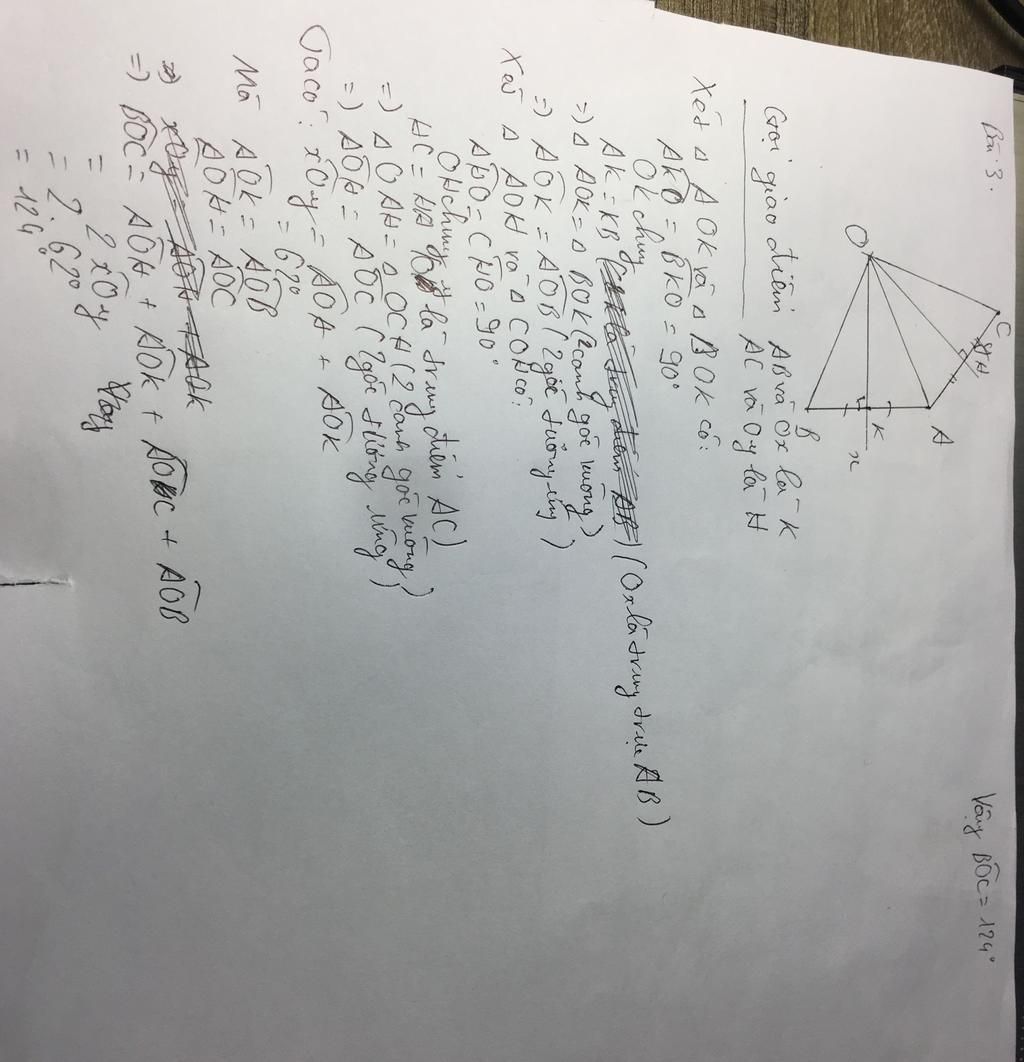 Bài 3.
O
C
H
A
K
x
B
Gọi giao điểm AB và Ox là K
AC và Oy là H
Xét Δ AOK và Δ BOK có:
AKO = BKO = 90°
OK chung
AK = KB (Ox là trung trực AB)
=) Δ AOK = Δ BOK (2 cạnh góc vuông)
=) AOK = AOB (2 góc tương ứng)
Xét Δ AOH và Δ COH có:
AHO = CHO = 90°
OH chung
HC = HA là trung điểm AC)
=) Δ OAH = Δ OCH (2 cạnh góc vuông)
=) AOH = AOC (2 góc tương ứng)
Ta có: xOy = AOH + AOK
= 62°
Mà AOK = AOB
AOH = AOC
=) xOy = AOH + AOK
=) BOC = AOH + AOK + AOC + AOB
= 2 xOy
= 2. 62°
= 124°
Vậy BOC = 124°